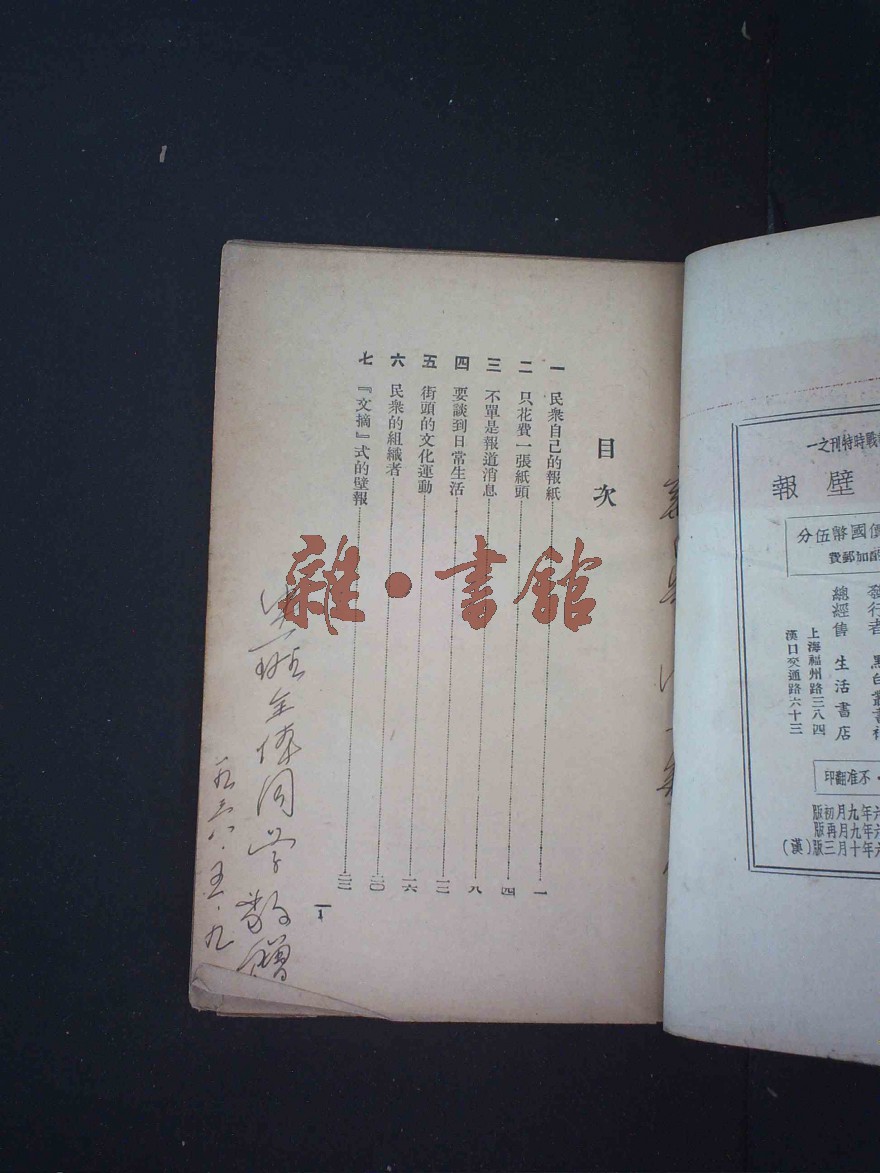 特刊之一
壁報
國幣伍分
加郵費
總經售 生活書店
上海福州路三八四
漢口交通路六十三
不准翻印
六年九月初版
六年九月再版
六年十月三版(漢)
目次
一 民衆自己的報紙 一
二 只花費一張紙頭 四
三 不單是報道消息 八
四 要談到日常生活 一三
五 街頭的文化運動 一六
六 民衆的組織者 二〇
七 『文摘』式的壁報
1
班全体同学敬贈
一九三八·五·九
雜·書館